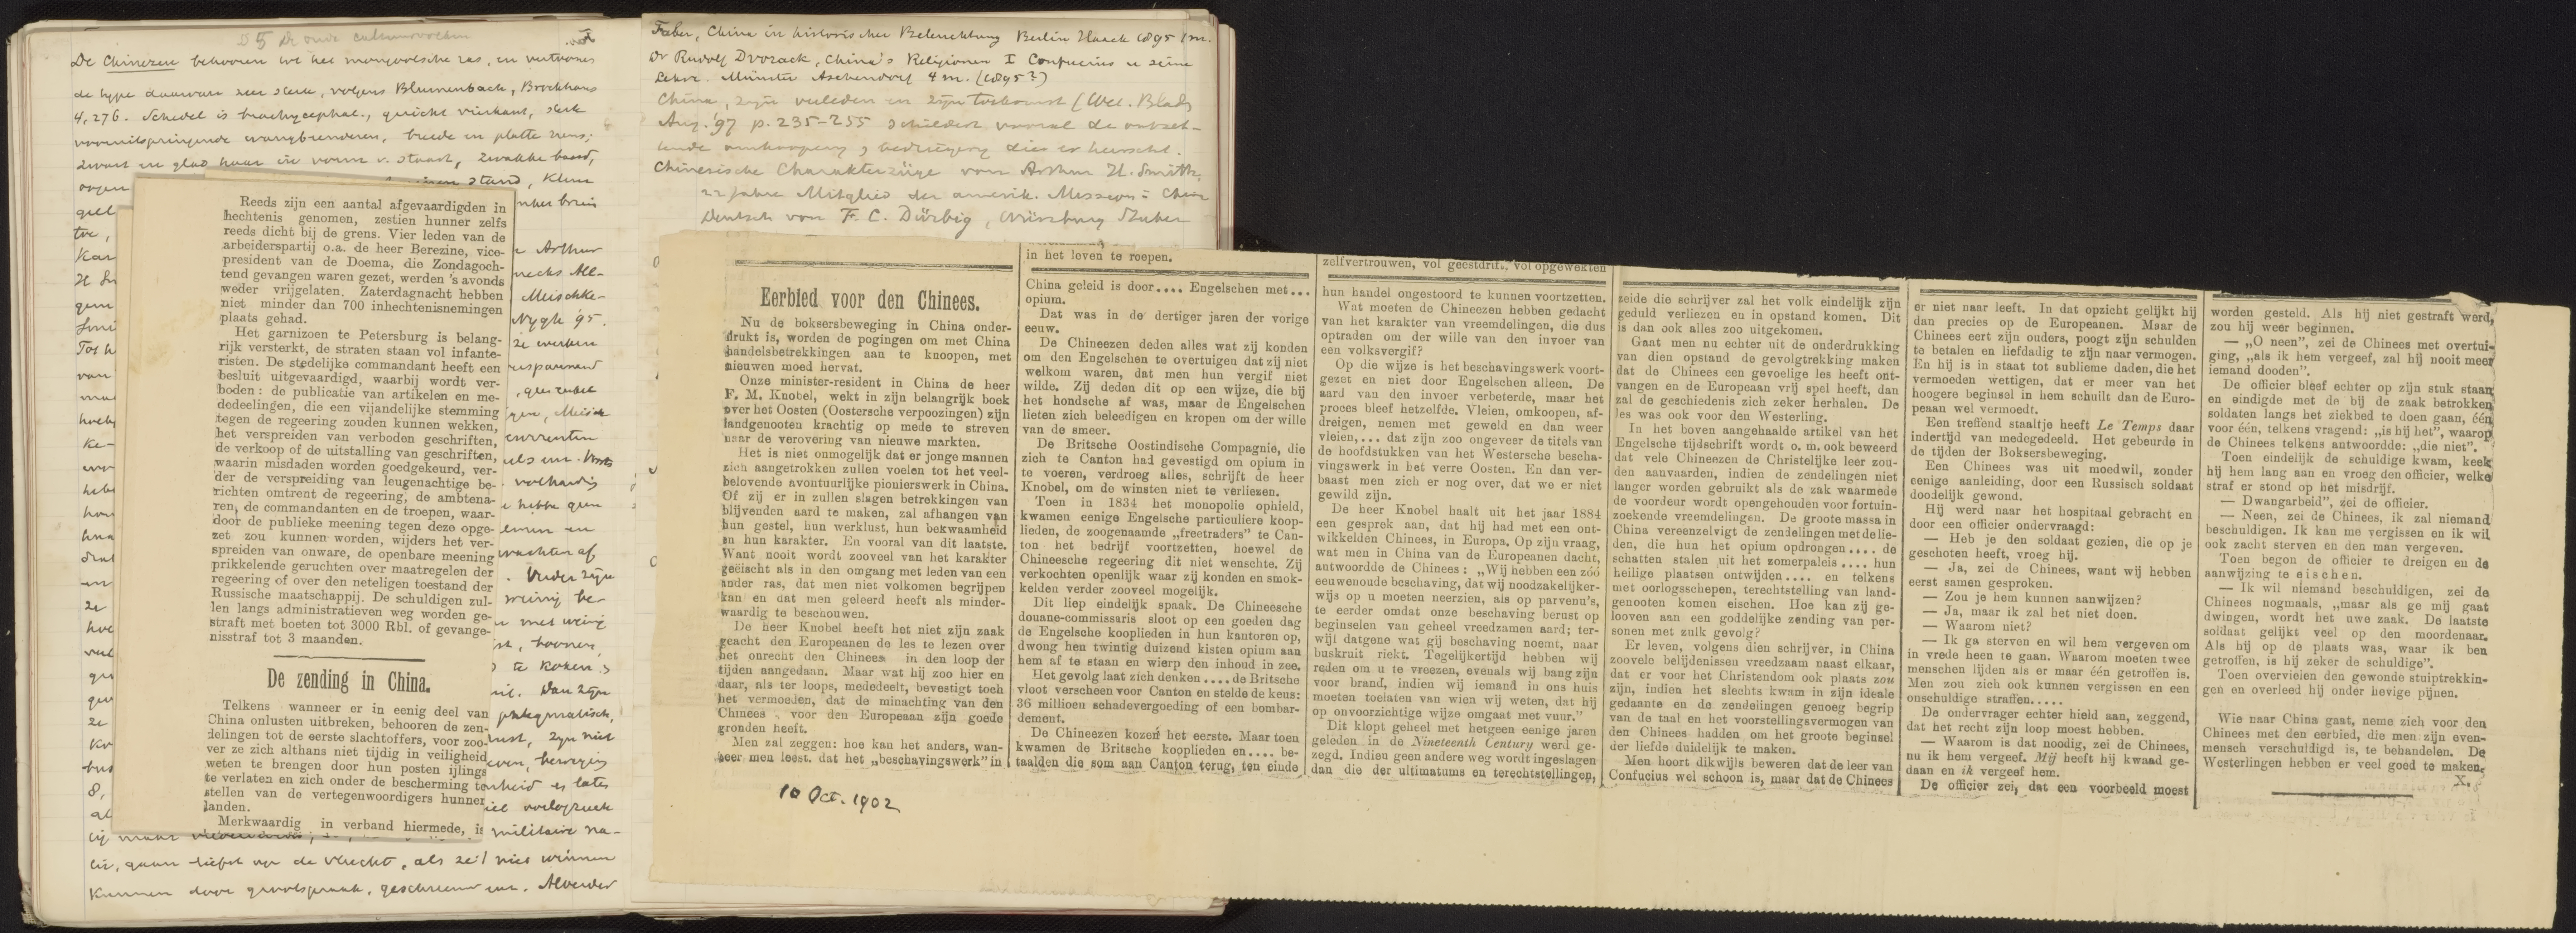 § 5 De oude cultuurvolken
De Chinezen behooren tot het mongoolsche ras, en vertoonen
de type daarvan zeer sterk, volgens Blumenbach, Brockhaus
4, 276. Schedel is brachycephal., quickt vierkant, sterk
vooruitspringende wangbeenderen, breede en platte neus;
zwart en glad haar in vorm v. staart, zwakke baard,
oogen
stand, klein
Reeds zijn een aantal afgevaardigden in
hechtenis genomen, zestien hunner zelfs
reeds dicht bij de grens. Vier leden van de
arbeiderspartij o.a. de heer Berezine, vice-
president van de Doema, die Zondagoch-
tend gevangen waren gezet, werden 's avonds
weder vrijgelaten. Zaterdagnacht hebben
niet minder dan 700 inhechtenisnemingen
plaats gehad.
Het garnizoen te Petersburg is belang-
rijk versterkt, de straten staan vol infante-
risten. De stedelijke commandant heeft een
besluit uitgevaardigd, waarbij wordt ver-
boden: de publicatie van artikelen en me-
dedeelingen, die een vijandelijke stemming
tegen de regeering zouden kunnen wekken,
het verspreiden van verboden geschriften,
de verkoop of de uitstalling van geschriften,
waarin misdaden worden goedgekeurd, ver-
der de verspreiding van leugenachtige be-
richten omtrent de regeering, de ambtena-
ren, de commandanten en de troepen, waar-
door de publieke meening tegen deze opge-
zet zou kunnen worden, wijders het ver-
spreiden van onware, de openbare meening
prikkelende geruchten over maatregelen der
regeering of over den neteligen toestand der
Russische maatschappij. De schuldigen zul-
len langs administratieven weg worden ge-
straft met boeten tot 3000 Rbl. of gevange-
nisstraf tot 3 maanden.
De zending in China.
Telkens wanneer er in eenig deel van
China onlusten uitbreken, behooren de zen-
delingen tot de eerste slachtoffers, voor zoo-
ver ze zich althans niet tijdig in veiligheid
weten te brengen door hun posten ijlings
te verlaten en zich onder de bescherming te
stellen van de vertegenwoordigers hunner
landen.
Merkwaardig in verband hiermede, is
Arthur
Meischke-
Nygh '95.
militaire na-
tie, gaan liefst op de vlucht, als ze niet winnen
kunnen door grootspraak, geschreeuw enz. Alverder
Faber, China in historischer Beleuchtung Berlin Haack 1895 1 m.
Dr Rudolf Dvorack, China's Religionen I Confucius u seine
Lehre. Münster Aschendorf 4 m. (1895?)
China, zijn verleden en zijn toekomst (Wet. Bladn
Aug. '97 p. 235-255 schildert vooral de ontzet-
tende omkooping, bedriegery die er heerscht.
Chinesische Charakterzüge von Arthur H. Smith,
22 Jahre Mitglied der amerik. Mission in China
Deutsch von F. C. Dürbig, Würzburg Stuber
Eerbied voor den Chinees.
Nu de boksersbeweging in China onder-
drukt is, worden de pogingen om met China
handelsbetrekkingen aan te knoopen, met
nieuwen moed hervat.
Onze minister-resident in China de heer
F. M. Knobel, wekt in zijn belangrijk boek
over het Oosten (Oostersche verpoozingen) zijn
landgenooten krachtig op mede te streven
naar de verovering van nieuwe markten.
Het is niet onmogelijk dat er jonge mannen
zich aangetrokken zullen voelen tot het veel-
belovende avontuurlijke pionierswerk in China.
Of zij er in zullen slagen betrekkingen van
blijvenden aard te maken, zal afhangen van
hun gestel, hun werklust, hun bekwaamheid
en hun karakter. En vooral van dit laatste.
Want nooit wordt zooveel van het karakter
geëischt als in den omgang met leden van een
ander ras, dat men niet volkomen begrijpen
kan en dat men geleerd heeft als minder-
waardig te beschouwen.
De heer Knobel heeft het niet zijn zaak
geacht den Europeanen de les te lezen over
het onrecht den Chinees in den loop der
tijden aangedaan. Maar wat hij zoo hier en
daar, als ter loops, mededeelt, bevestigt toch
het vermoeden, dat de minachting van den
Chinees voor den Europeaan zijn goede
gronden heeft.
Men zal zeggen: hoe kan het anders, wan-
neer men leest, dat het „beschavingswerk" in
10 Oct. 1902
in het leven te roepen.
China geleid is door.... Engelschen met...
opium.
Dat was in de dertiger jaren der vorige
eeuw.
De Chineezen deden alles wat zij konden
om den Engelschen te overtuigen dat zij niet
welkom waren, dat men hun vergif niet
wilde. Zij deden dit op een wijze, die bij
het hondsche af was, maar de Engelschen
lieten zich beleedigen en kropen om der wille
van de smeer.
De Britsche Oostindische Compagnie, die
zich te Canton had gevestigd om opium in
te voeren, verdroeg alles, schrijft de heer
Knobel, om de winsten niet te verliezen.
Toen in 1834 het monopolie ophield,
kwamen eenige Engelsche particuliere koop-
lieden, de zoogenaamde „freetraders" te Can-
ton het bedrijf voortzetten, hoewel de
Chineesche regeering dit niet wenschte. Zij
verkochten openlijk waar zij konden en smok-
kelden verder zooveel mogelijk.
Dit liep eindelijk spaak. De Chineesche
douane-commissaris sloot op een goeden dag
de Engelsche kooplieden in hun kantoren op,
dwong hen twintig duizend kisten opium aan
hem af te staan en wierp den inhoud in zee.
Het gevolg laat zich denken.... de Britsche
vloot verscheen voor Canton en stelde de keus:
36 millioen schadevergoeding of een bombar-
dement.
De Chineezen kozen het eerste. Maar toen
kwamen de Britsche kooplieden en.... be-
taalden die som aan Canton terug, ten einde
zelfvertrouwen, vol geestdrift, vol opgewekten
hun handel ongestoord te kunnen voortzetten.
Wat moeten de Chineezen hebben gedacht
van het karakter van vreemdelingen, die dus
optraden om der wille van den invoer van
een volksvergif?
Op die wijze is het beschavingswerk voort-
gezet en niet door Engelschen alleen. De
aard van den invoer verbeterde, maar het
proces bleef hetzelfde. Vleien, omkoopen, af-
dreigen, nemen met geweld en dan weer
vleien,... dat zijn zoo ongeveer de titels van
de hoofdstukken van het Westersche bescha-
vingswerk in het verre Oosten. En dan ver-
baast men zich er nog over, dat we er niet
gewild zijn.
De heer Knobel haalt uit het jaar 1884
een gesprek aan, dat hij had met een ont-
wikkelden Chinees, in Europa. Op zijn vraag,
wat men in China van de Europeanen dacht,
antwoordde de Chinees: „Wij hebben een zóó
eeuwenoude beschaving, dat wij noodzakelijker-
wijs op u moeten neerzien, als op parvenu's,
te eerder omdat onze beschaving berust op
beginselen van geheel vreedzamen aard; ter-
wijl datgene wat gij beschaving noemt, naar
buskruit riekt. Tegelijkertijd hebben wij
reden om u te vreezen, evenals wij bang zijn
voor brand, indien wij iemand in ons huis
moeten toelaten van wien wij weten, dat hij
op onvoorzichtige wijze omgaat met vuur."
Dit klopt geheel met hetgeen eenige jaren
geleden in de Nineteenth Century werd ge-
zegd. Indien geen andere weg wordt ingeslagen
dan die der ultimatums en terechtstellingen,
zeide die schrijver zal het volk eindelijk zijn
geduld verliezen en in opstand komen. Dit
is dan ook alles zoo uitgekomen.
Gaat men nu echter uit de onderdrukking
van dien opstand de gevolgtrekking maken
dat de Chinees een gevoelige les heeft ont-
vangen en de Europeaan vrij spel heeft, dan
zal de geschiedenis zich zeker herhalen. De
les was ook voor den Westerling.
In het boven aangehaalde artikel van het
Engelsche tijdschrift wordt o. m. ook beweerd
dat vele Chineezen de Christelijke leer zou-
den aanvaarden, indien de zendelingen niet
langer worden gebruikt als de zak waarmede
de voordeur wordt opengehouden voor fortuin-
zoekende vreemdelingen. De groote massa in
China vereenzelvigt de zendelingen met de lie-
den, die hun het opium opdrongen.... de
schatten stalen uit het zomerpaleis.... hun
heilige plaatsen ontwijden.... en telkens
met oorlogsschepen, terechtstelling van land-
genooten komen eischen. Hoe kan zij ge-
looven aan een goddelijke zending van per-
sonen met zulk gevolg?
Er leven, volgens dien schrijver, in China
zoovele belijdenissen vreedzaam naast elkaar,
dat er voor het Christendom ook plaats zou
zijn, indien het slechts kwam in zijn ideale
gedaante en de zendelingen genoeg begrip
van de taal en het voorstellingsvermogen van
den Chinees hadden om het groote beginsel
der liefde duidelijk te maken.
Men hoort dikwijls beweren dat de leer van
Confucius wel schoon is, maar dat de Chinees
er niet naar leeft. In dat opzicht gelijkt hij
dan precies op de Europeanen. Maar de
Chinees eert zijn ouders, poogt zijn schulden
te betalen en liefdadig te zijn naar vermogen.
En hij is in staat tot sublieme daden, die het
vermoeden wettigen, dat er meer van het
hoogere beginsel in hem schuilt dan de Euro-
peaan wel vermoedt.
Een treffend staaltje heeft Le Temps daar
indertijd van medegedeeld. Het gebeurde in
de tijden der Boksersbeweging.
Een Chinees was uit moedwil, zonder
eenige aanleiding, door een Russisch soldaat
doodelijk gewond.
Hij werd naar het hospitaal gebracht en
door een officier ondervraagd:
— Heb je den soldaat gezien, die op je
geschoten heeft, vroeg hij.
— Ja, zei de Chinees, want wij hebben
eerst samen gesproken.
— Zou je hem kunnen aanwijzen?
— Ja, maar ik zal het niet doen.
— Waarom niet?
— Ik ga sterven en wil hem vergeven om
in vrede heen te gaan. Waarom moeten twee
menschen lijden als er maar één getroffen is.
Men zou zich ook kunnen vergissen en een
onschuldige straffen.....
De ondervrager echter hield aan, zeggend,
dat het recht zijn loop moest hebben.
— Waarom is dat noodig, zei de Chinees,
nu ik hem vergeef. Mij heeft hij kwaad ge-
daan en ik vergeef hem.
De officier zei, dat een voorbeeld moest
worden gesteld. Als hij niet gestraft werd,
zou hij weer beginnen.
— „O neen", zei de Chinees met overtui-
ging, „als ik hem vergeef, zal hij nooit meer
iemand dooden".
De officier bleef echter op zijn stuk staan
en eindigde met de bij de zaak betrokken
soldaten langs het ziekbed te doen gaan, één
voor één, telkens vragend: „is hij het", waarop
de Chinees telkens antwoordde: „die niet".
Toen eindelijk de schuldige kwam, keek
hij hem lang aan en vroeg den officier, welke
straf er stond op het misdrijf.
— Dwangarbeid", zei de officier.
— Neen, zei de Chinees, ik zal niemand
beschuldigen. Ik kan me vergissen en ik wil
ook zacht sterven en den man vergeven.
Toen begon de officier te dreigen en de
aanwijzing te eischen.
— Ik wil niemand beschuldigen, zei de
Chinees nogmaals, „maar als ge mij gaat
dwingen, wordt het uwe zaak. De laatste
soldaat gelijkt veel op den moordenaar.
Als hij op de plaats was, waar ik ben
getroffen, is hij zeker de schuldige".
Toen overvielen den gewonde stuiptrekkin-
gen en overleed hij onder hevige pijnen.
Wie naar China gaat, neme zich voor den
Chinees met den eerbied, die men zijn even-
mensch verschuldigd is, te behandelen. De
Westerlingen hebben er veel goed te maken.
X.